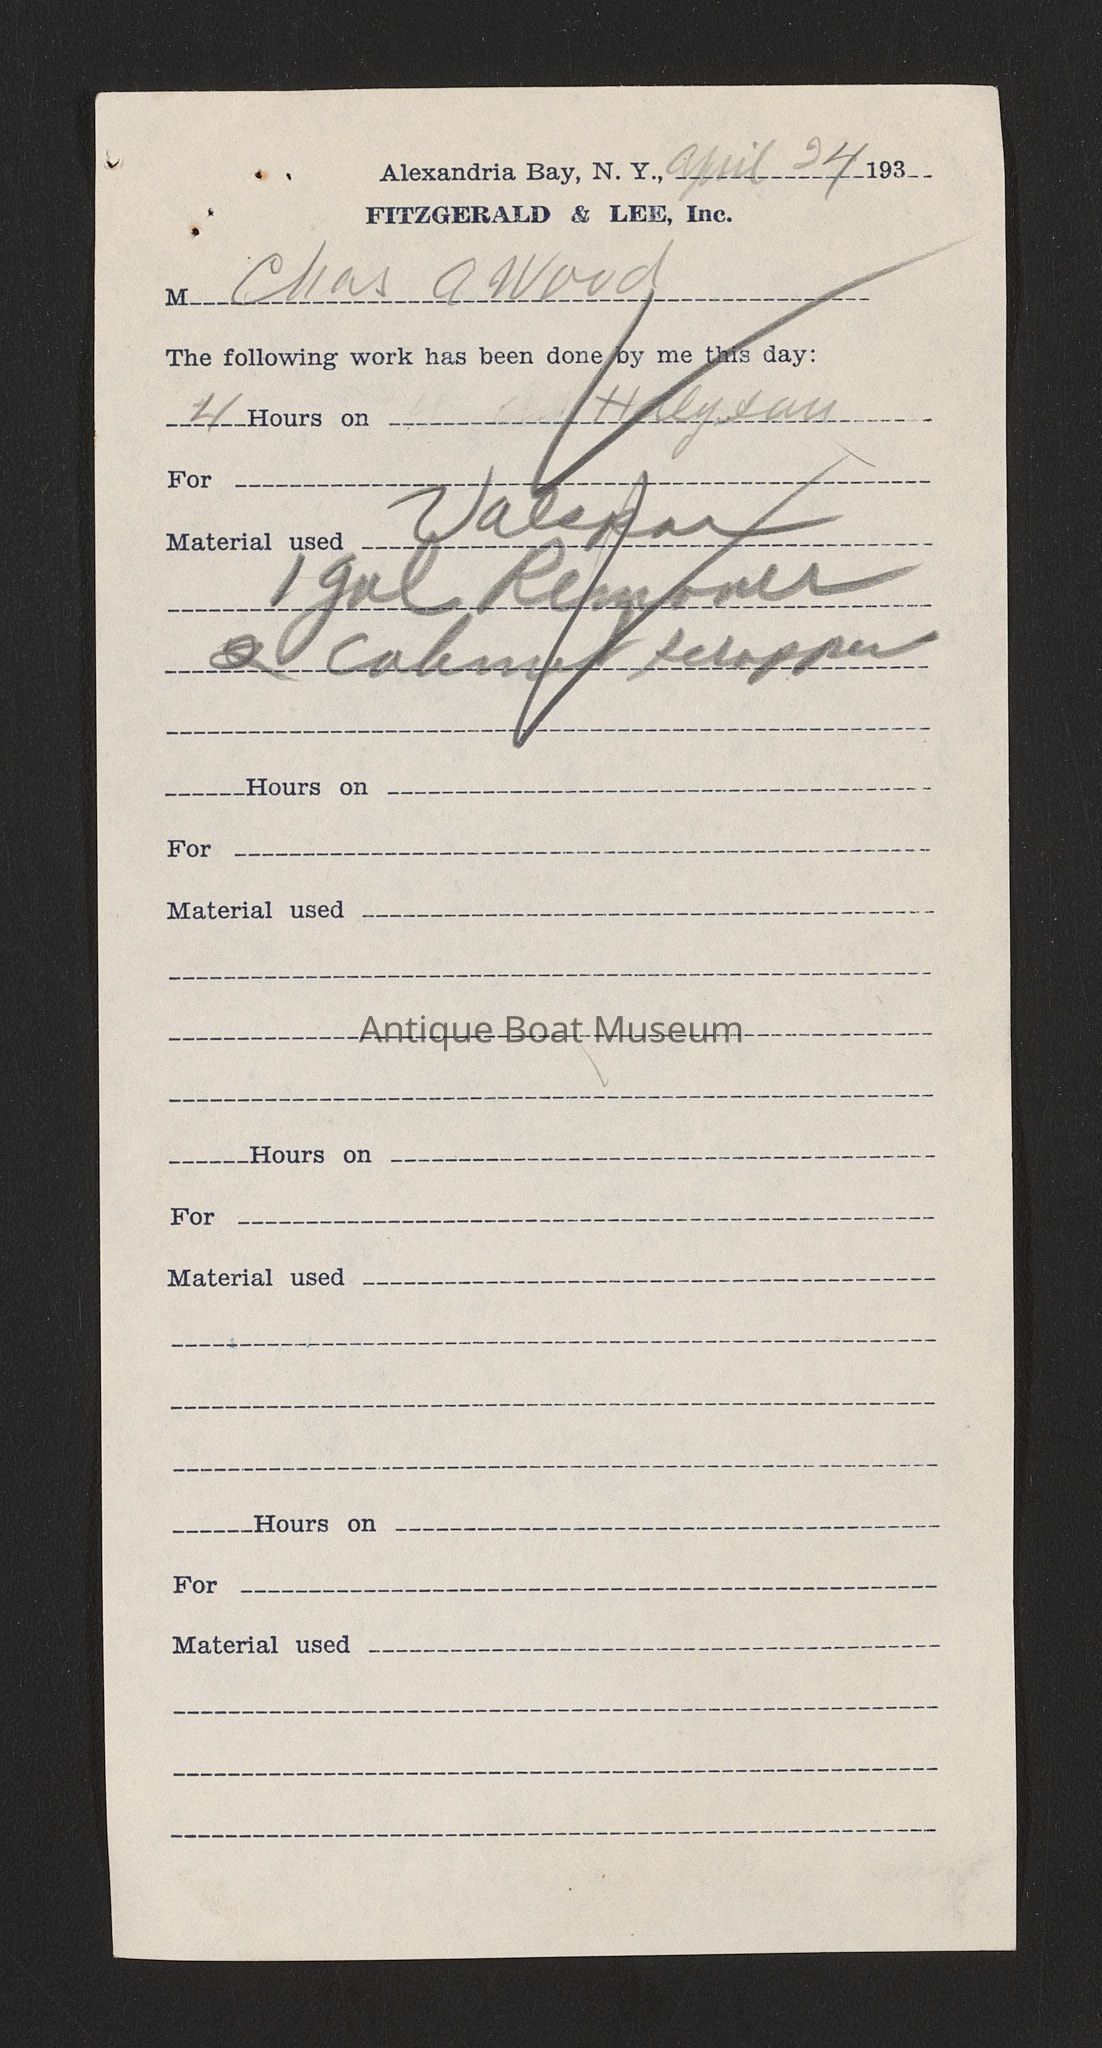 Alexandria Bay, N. Y., April 24 193
FITZGERALD & LEE, Inc.
M Chas A Wood
The following work has been done by me this day:
4 Hours on
For
Material used Valspar
1 gal Remover
2 Cabinet scrapper
Hours on
For
Material used
Antique Boat Museum
Hours on
For
Material used
Hours on
For
Material used